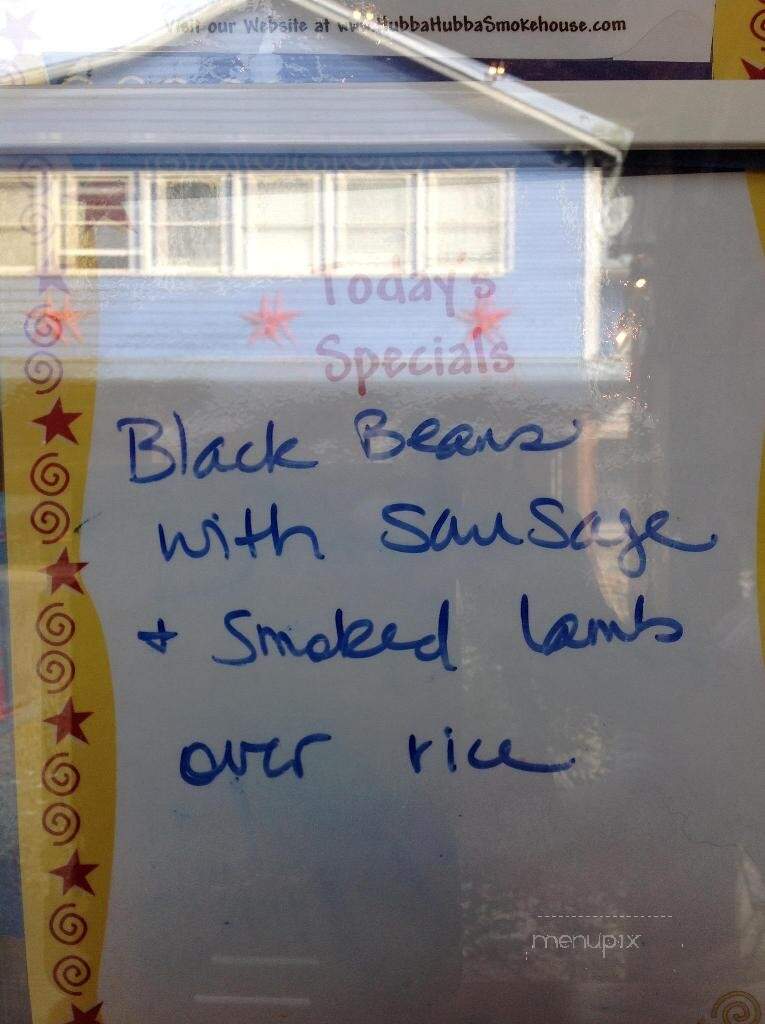 Visit our Website at www.HubbaHubbaSmokehouse.com
Today's
Specials
Black Beans
with Sausage
+ Smoked lamb
over rice
menupix